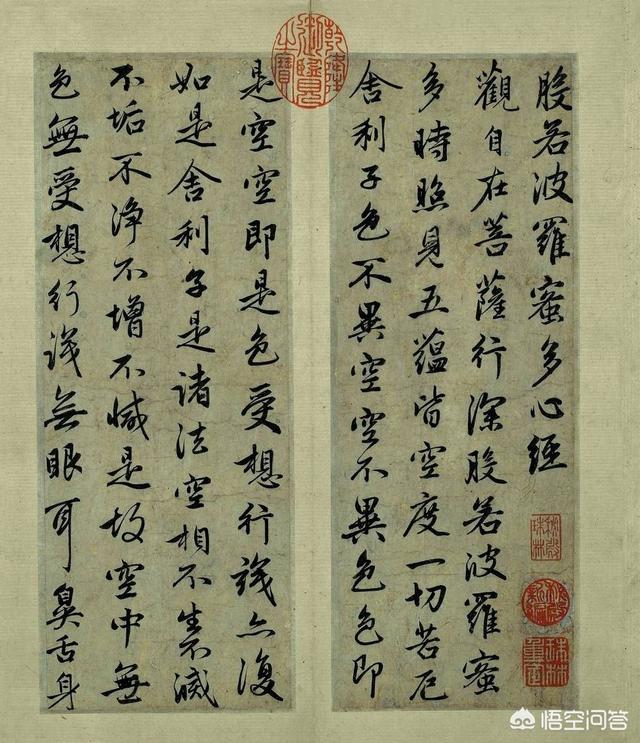 般若波羅蜜多心經
觀自在菩薩行深般若波羅蜜
多時照見五蘊皆空度一切苦厄
舍利子色不異空空不異色色即
是空空即是色受想行識亦復
如是舍利子是諸法空相不生不滅
不垢不淨不增不減是故空中無
色無受想行識無眼耳鼻舌身
乾隆御覽之寶
秘殿珠林
秘殿新編
珠林重定
悟空问答